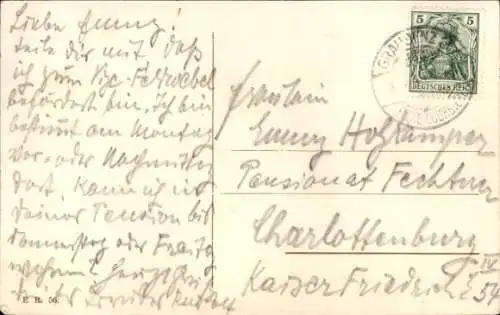 Liebe Emmy!
teile dir mit, daß
ich zum Vize-Feldwebel
befördert bin. Ich bin
bestimmt am Montag
vor- oder Nachmittag
dort. Kann ich in
deiner Pension bis
donnerstag oder Freitag
wohnen? Herzl. Gruß
dein Bruder
E. R. 56.
5 5
DEUTSCHES REICH
GRAUDENZ
Fräulein
Emmy Holzkamper
Pensionat Fechtner
Charlottenburg IV
Kaiser Friedrich 54